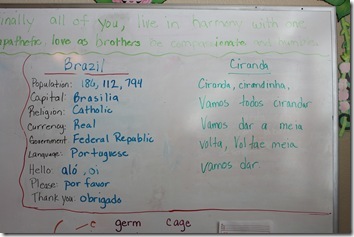 inally all of you, live in harmony with one
mpathetic, love as brothers be compassionate and
Brazil
Population: 186,112,794
Capital: Brasilia
Religion: Catholic
Currency: Real
Government: Federal Republic
Language: Portoguese
Hello: aló, oi
Please: por favor
Thank you: obrigado
Ciranda
Ciranda, cirandinha,
Vamos todos cirandar
Vamos dar a meia
volta, Volta e meia
vamos dar.
germ cage